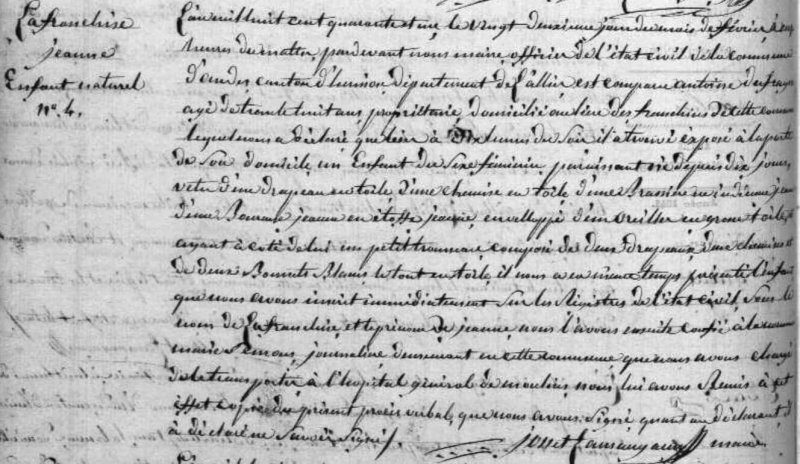 Lafranchise
jeanne
Enfant naturel
n°. 4.
L'an mil huit cent quarante et un le vingt deuxieme jour du mois de février à
heures du matin, pardevant nous maire, officier de l'état civil de la commune
canton d'hérisson département de l'allier est comparu antoine
agé de trente huit ans, propriétaire, domicilié au lieu des de cette commune
lequel nous a déclaré que hier à heures du soir il a trouvé exposé à la porte
de son domicile, un Enfant du Sexe féminin, paraissant né depuis dix jours
vetu d'un drapeau en toile d'une chemise en toile d'une Brassière en indienne
d'une en étoffe jaune, enveloppé d'un en grosse toile,
ayant à coté de lui un petit trousseau composé de deux drapeaux, d'une chemise et
de deux Bonnets Blancs le tout en toile, il nous a en même temps présenté l'enfant
que nous avons inscrit immédiatement Sur les Registres de l'état Civil, Sous le
nom de Lafranchise, et le prénom de jeanne, nous l'avons ensuite confié à la
marie journalière demeurant en cette commune que nous avons chargé
de le transporter à l'hopital général de moulins, nous lui avons Remis à cet
effet copie du présent procès verbal, que nous avons Signé quant au déclarant, il
a déclaré ne Savoir Signer.
maire